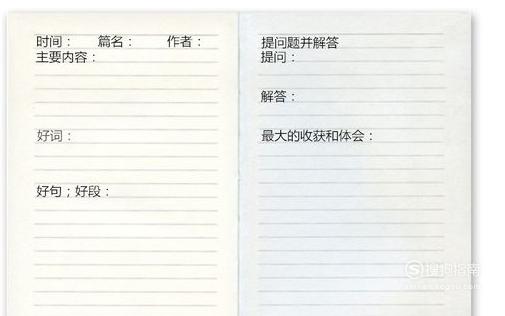 时间： 篇名： 作者：
主要内容：
好词：
好句；好段：
提问题并解答
提问：
解答：
最大的收获和体会：
搜狗指南